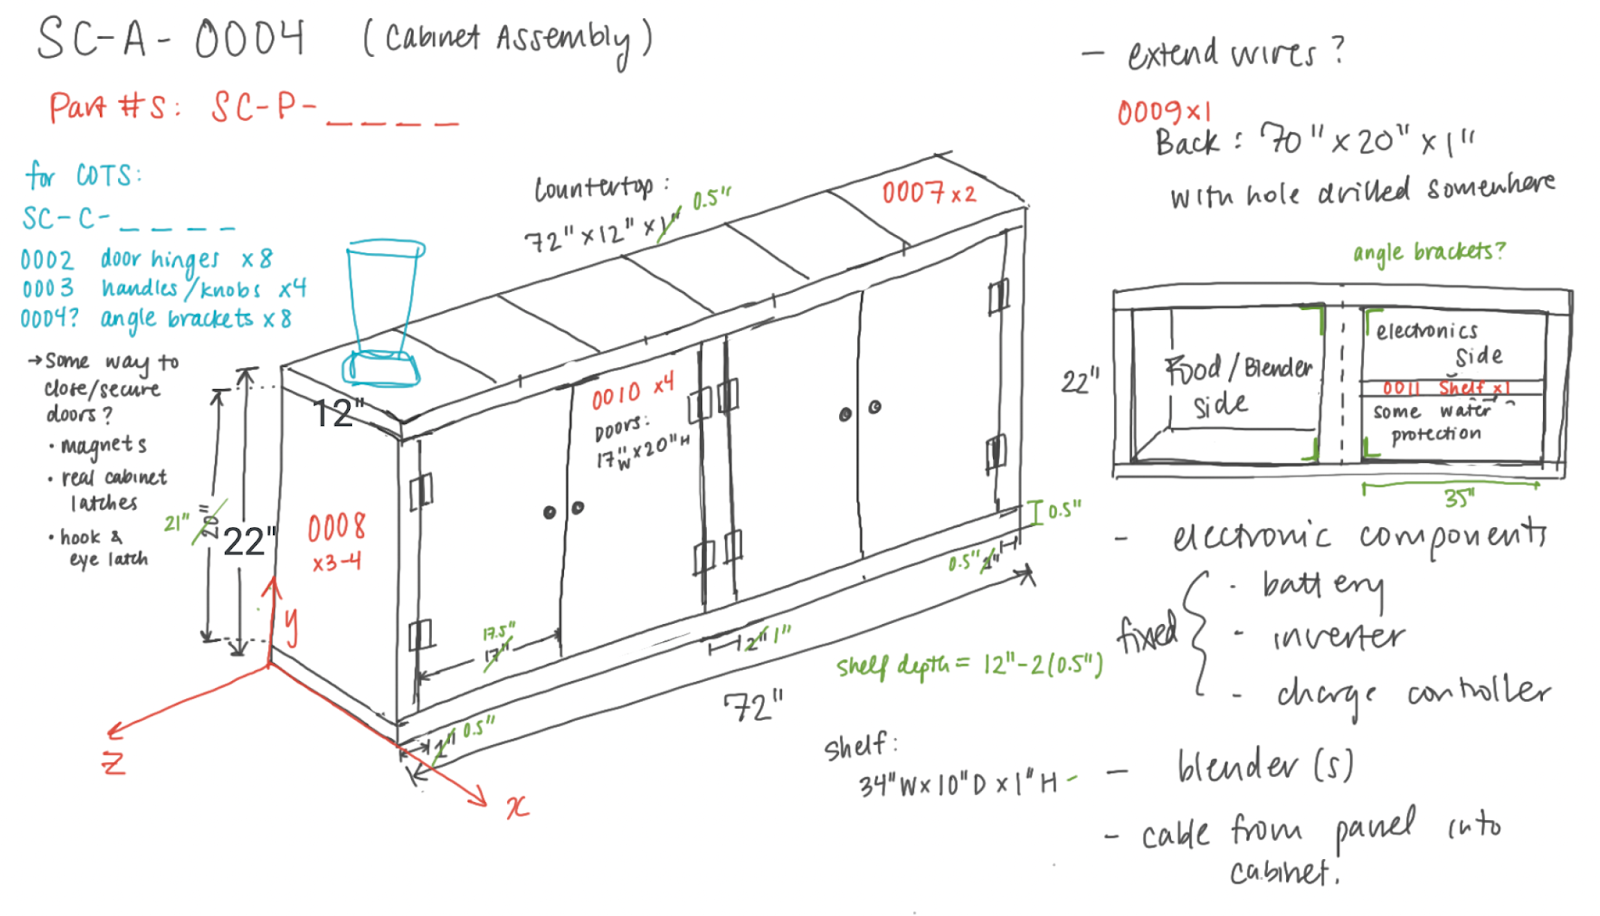 SC-A-0004 (Cabinet Assembly)
Part #s: SC-P-____
for COTS:
SC-C-____
0002 door hinges x8
0003 handles/knobs x4
0004? angle brackets x8
→ Some way to
close/secure
doors?
• magnets
• real cabinet
latches
• hook &
eye latch
Countertop:
72" x 12" x 1"
0.5"
0007 x2
12"
0010 x4
Doors:
17"W x 20"H
21"
20"
22"
0008
x3-4
y
z
x
17.5"
17"
1"
0.5"
2"
1"
72"
0.5"
0.5"
1"
shelf depth = 12"-2(0.5")
shelf:
34"W x 10"D x 1"H -
- extend wires?
0009x1
Back: 70" x 20" x 1"
with hole drilled somewhere
angle brackets?
22"
Food/Blender
side
electronics
side
0011 Shelf x1
some water
protection
35"
- electronic components
fixed
- battery
- inverter
- charge controller
- blender(s)
- cable from panel into
cabinet.